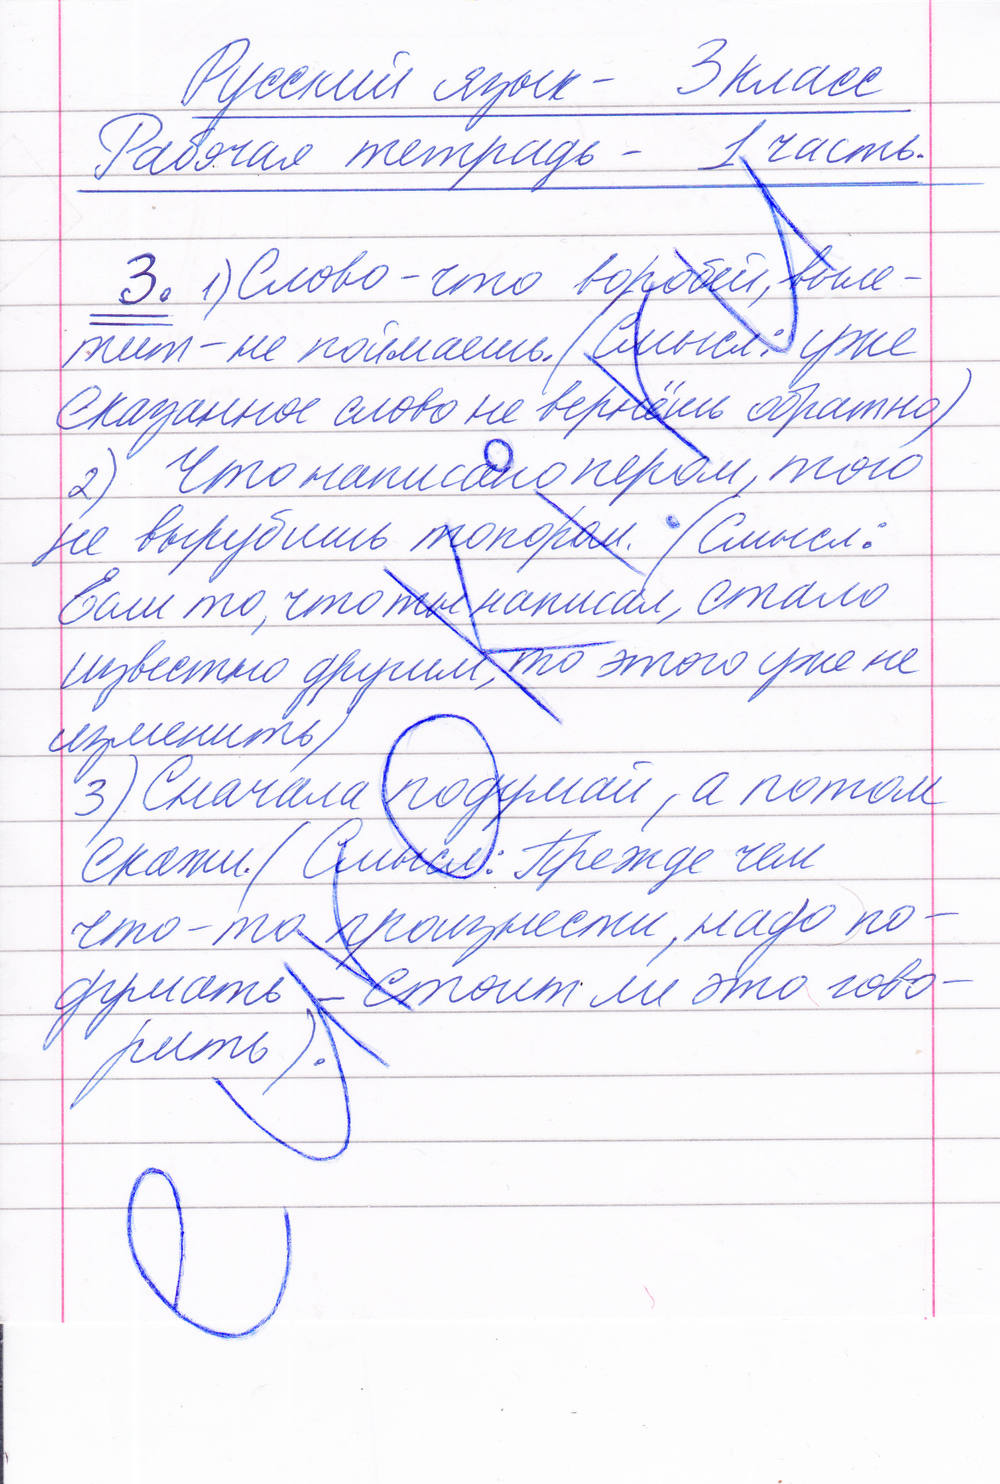 Русский язык - 3 класс
Рабочая тетрадь - 1 часть.
3. 1) Слово - что воробей, выле-
тит - не поймаешь. (Смысл: уже
сказанное слово не вернёшь обратно)
2) Что написано пером, того
не вырубишь топором. (Смысл:
Если то, что ты написал, стало
известно другим, то этого уже не
изменить)
3) Сначала подумай, а потом
скажи. (Смысл: Прежде чем
что-то произнести, надо по-
думать - стоит ли это гово-
рить).